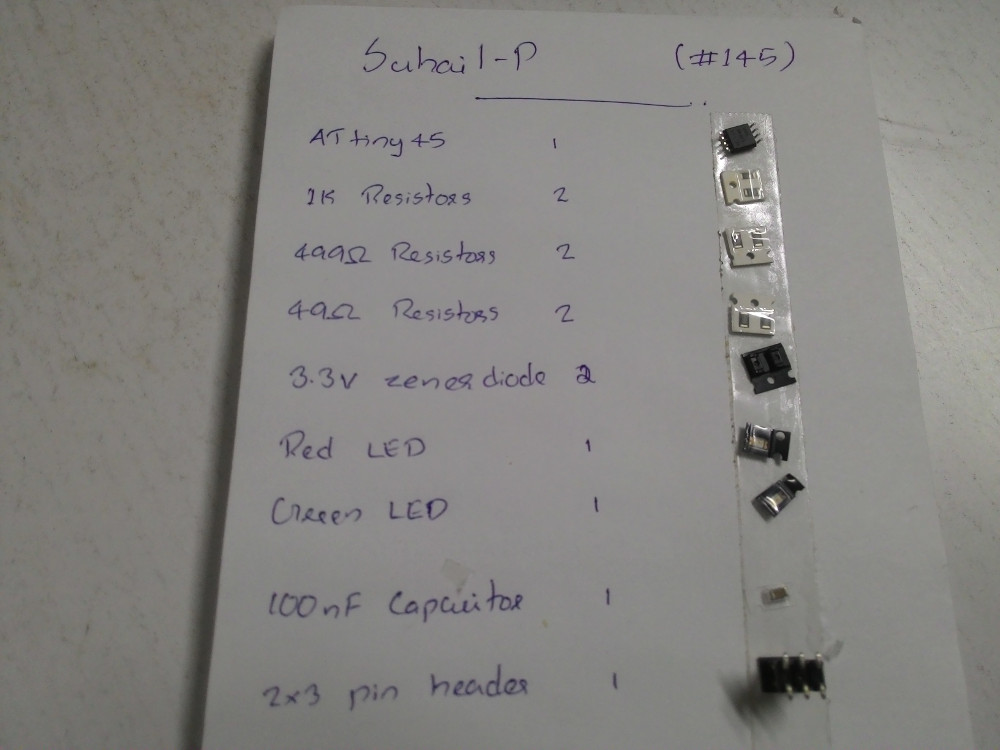 Suhail-P (#145)
ATtiny45 1
1K Resistors 2
499Ω Resistors 2
49Ω Resistors 2
3.3V zener diode 2
Red LED 1
Green LED 1
100nF Capacitor 1
2x3 pin header 1